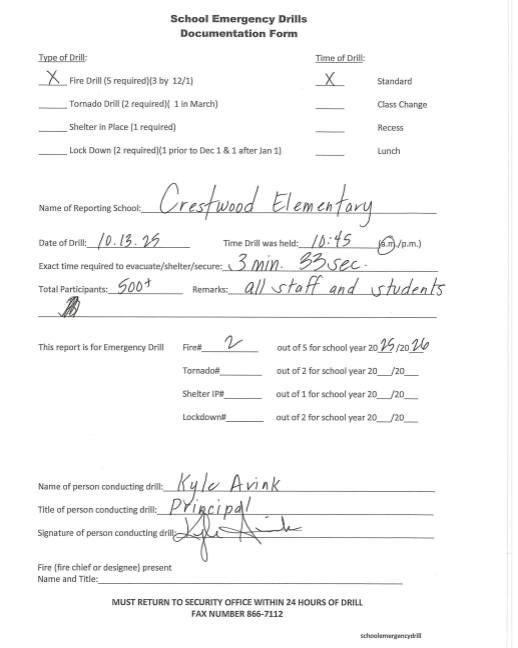 School Emergency Drills
Documentation Form
Type of Drill: Time of Drill:
X Fire Drill (5 required)(3 by 12/1) X Standard
Tornado Drill (2 required)( 1 in March) Class Change
Shelter in Place (1 required) Recess
Lock Down (2 required)(1 prior to Dec 1 & 1 after Jan 1) Lunch
Name of Reporting School: Crestwood Elementary
Date of Drill: 10.13.25 Time Drill was held: 10:45 (a.m./p.m.)
Exact time required to evacuate/shelter/secure: 3 min. 33 sec.
Total Participants: 500+ Remarks: all staff and students
This report is for Emergency Drill Fire# 2 out of 5 for school year 2025/2026
Tornado# out of 2 for school year 20__/20__
Shelter IP# out of 1 for school year 20__/20__
Lockdown# out of 2 for school year 20__/20__
Name of person conducting drill: Kyle Avink
Title of person conducting drill: Principal
Signature of person conducting drill: Kyle Avink
Fire (fire chief or designee) present
Name and Title:
MUST RETURN TO SECURITY OFFICE WITHIN 24 HOURS OF DRILL
FAX NUMBER 866-7112
schoolemergencydrill